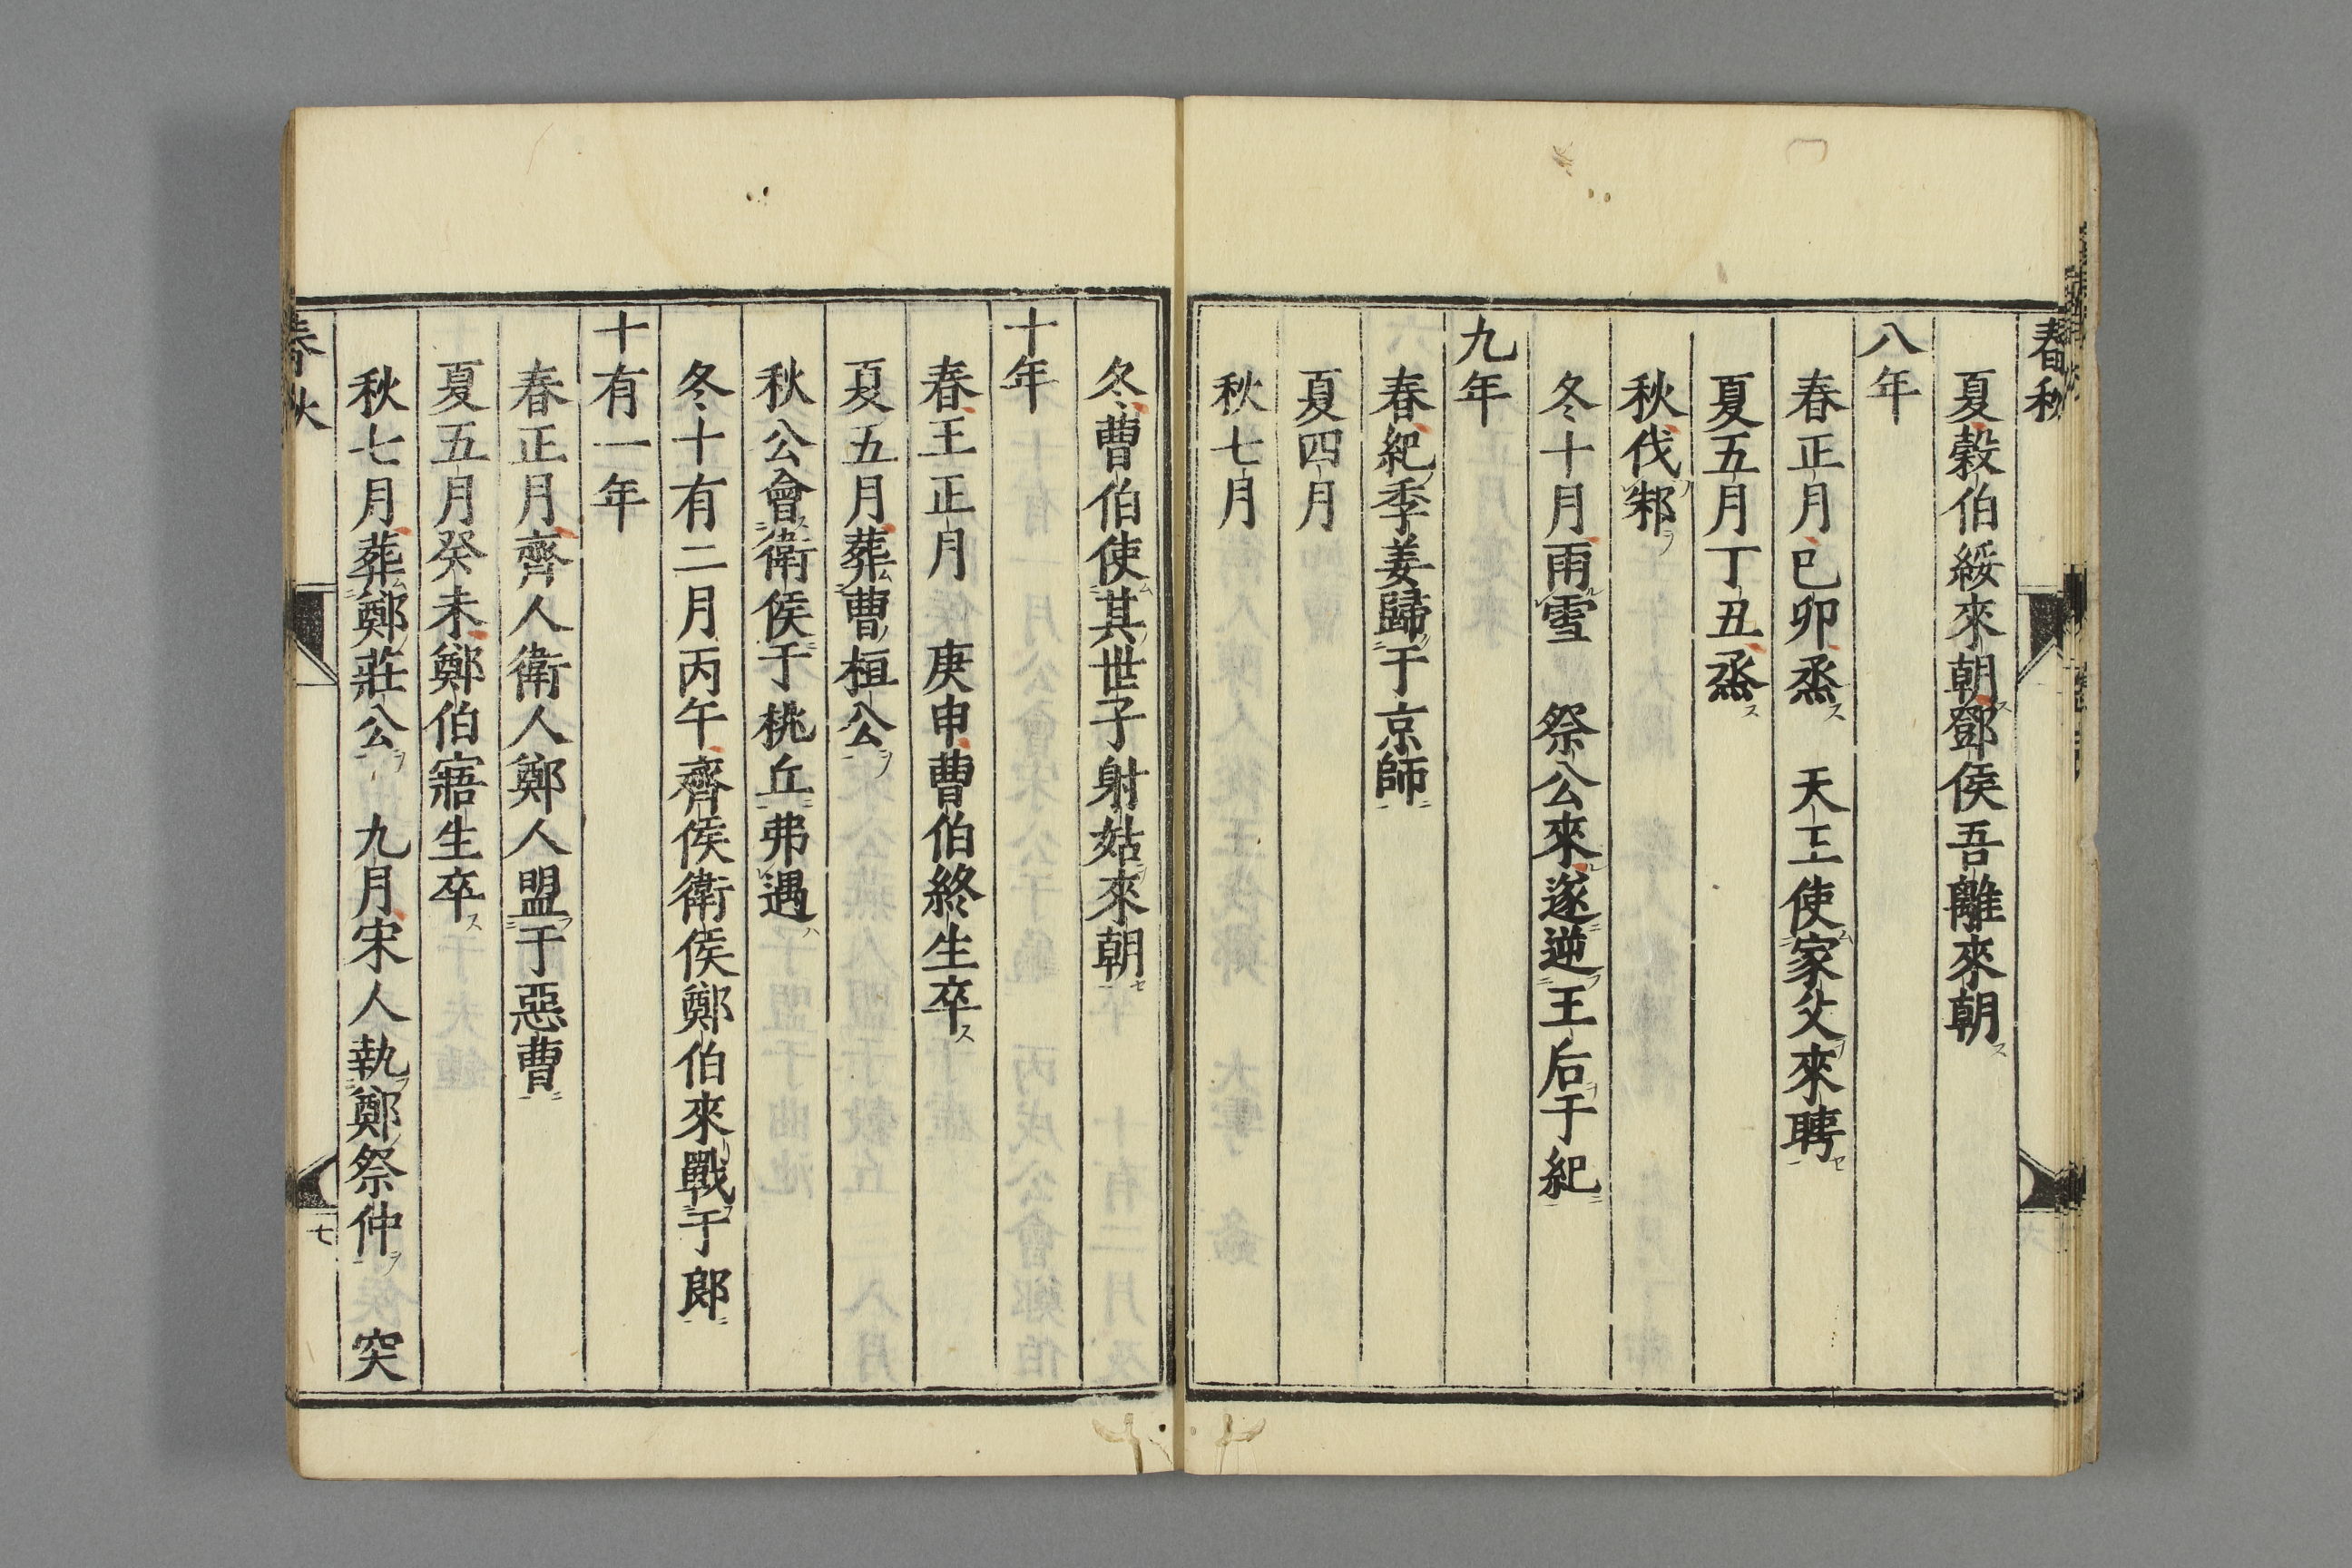 春秋
夏穀伯綏來朝鄧侯吾離來朝
八年
春正月巳卯烝　天王使家父來聘
夏五月丁丑烝
秋伐邾
冬十月雨雪　祭公來遂逆王后于紀
九年
春紀季姜歸于京師
夏四月
秋七月
冬曹伯使其世子射姑來朝
十年
春王正月　庚申曹伯終生卒
夏五月葬曹桓公
秋公會衛侯于桃丘弗遇
冬十有二月丙午齊侯衛侯鄭伯來戰于郎
十有一年
春正月齊人衛人鄭人盟于惡曹
夏五月癸未鄭伯寤生卒
秋七月葬鄭莊公　九月宋人執鄭祭仲　突
春秋
七